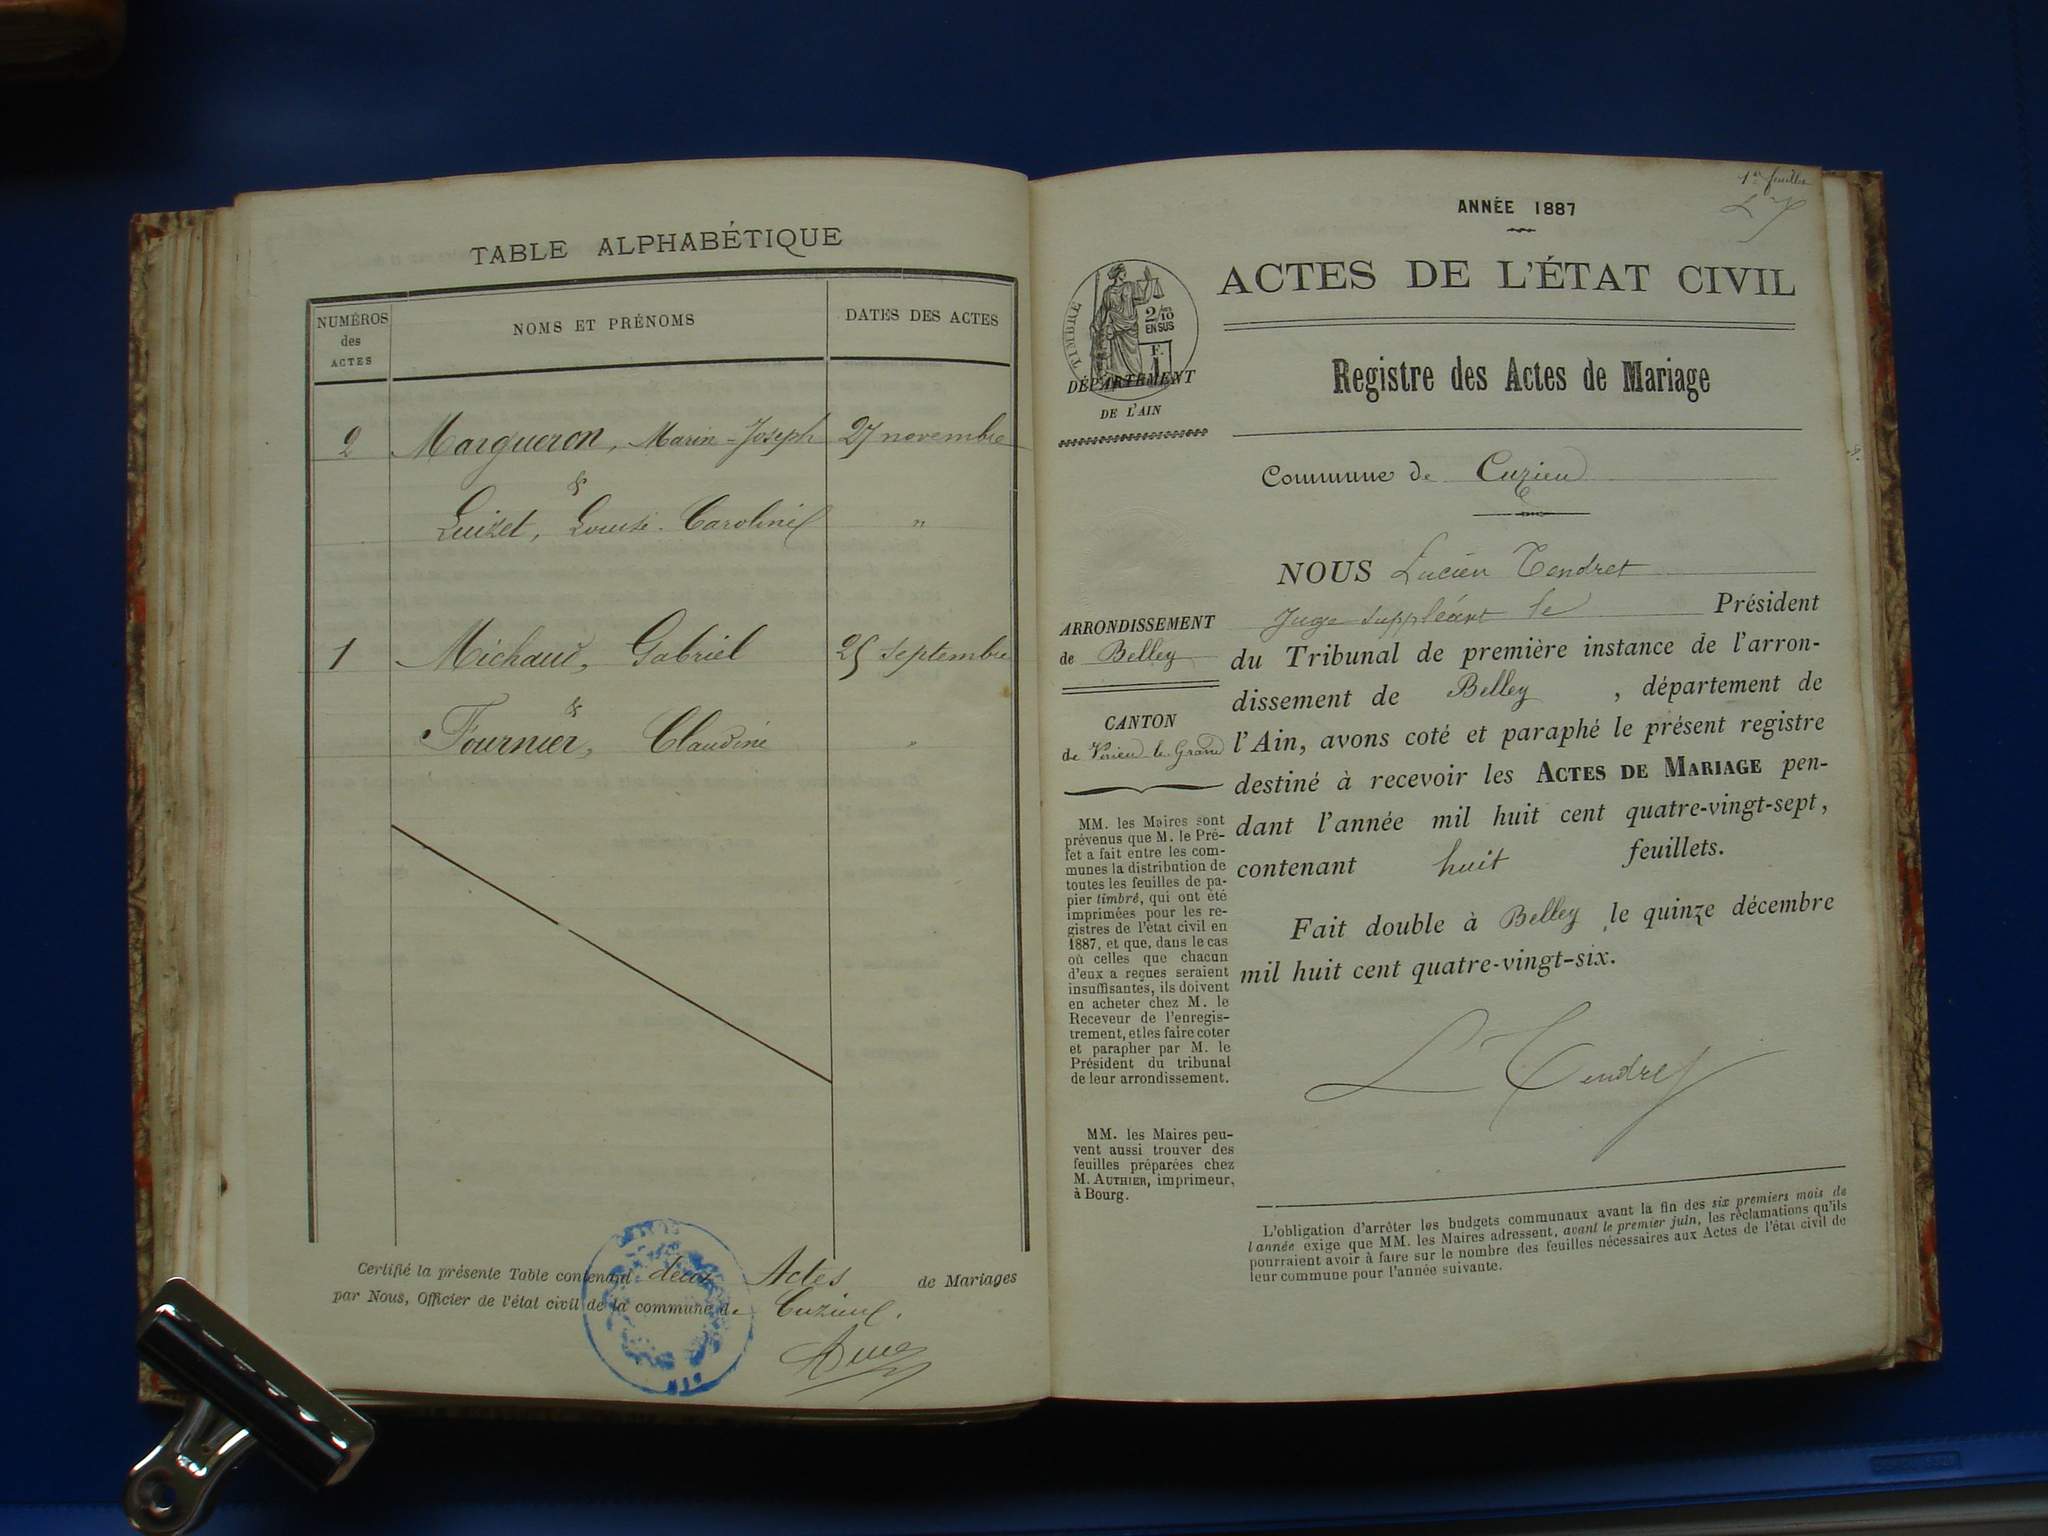 TABLE ALPHABÉTIQUE
NUMÉROS
des
ACTES
NOMS ET PRÉNOMS
DATES DES ACTES
2 Margueron, Marin-Joseph 27 novembre
&
Luizet, Louise-Caroline "
1 Michaud, Gabriel 25 septembre
&
Fournier, Claudine "
Certifié la présente Table contenant deux Actes de Mariages
par Nous, Officier de l'état civil de la commune de Cuzieu.
1er feuillet
ANNÉE 1887
ACTES DE L'ÉTAT CIVIL
TIMBRE
2/10
EN SUS
F.
1
DÉPARTEMENT
DE L'AIN
Registre des Actes de Mariage
Commune de Cuzieu
ARRONDISSEMENT
de Belley
CANTON
de Virieu-le-Grand
MM. les Maires sont
prévenus que M. le Pré-
fet a fait entre les com-
munes la distribution de
toutes les feuilles de pa-
pier timbré, qui ont été
imprimées pour les re-
gistres de l'état civil en
1887, et que, dans le cas
où celles que chacun
d'eux a reçues seraient
insuffisantes, ils doivent
en acheter chez M. le
Receveur de l'enregis-
trement, et les faire coter
et parapher par M. le
Président du tribunal
de leur arrondissement.
MM. les Maires peu-
vent aussi trouver des
feuilles préparées chez
M. AUTHIER, imprimeur,
à Bourg.
NOUS Lucien Tendret
Juge suppléant le Président
du Tribunal de première instance de l'arron-
dissement de Belley, département de
l'Ain, avons coté et paraphé le présent registre
destiné à recevoir les ACTES DE MARIAGE pen-
dant l'année mil huit cent quatre-vingt-sept,
contenant huit feuillets.
Fait double à Belley, le quinze décembre
mil huit cent quatre-vingt-six.
L Tendret
L'obligation d'arrêter les budgets communaux avant la fin des six premiers mois de
l'année exige que MM. les Maires adressent, avant le premier juin, les réclamations qu'ils
pourraient avoir à faire sur le nombre des feuilles nécessaires aux Actes de l'état civil de
leur commune pour l'année suivante.